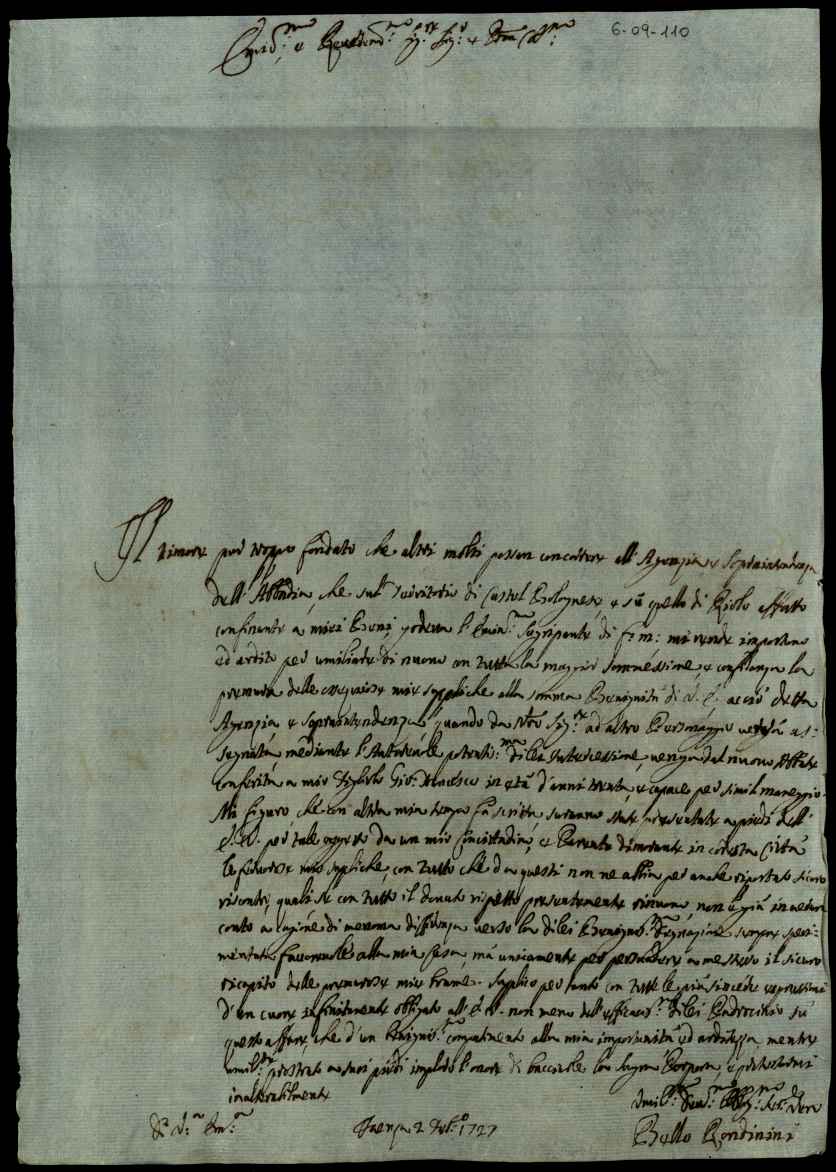 6-09-110
Emin.mo e Reverend.mo Sig.re Sig.r e Pron Col.mo
Il timore pur troppo fondato che altri molti possan concorrere all'Agenzia e Sopraintendenza
dell'Abbadia, che sul Territorio di Castel Bolognese, e sù quello di Riolo affatto
confinante a miei Beni, godeva l'Emin.mo di f: m: mi rende importuno
ed ardito per umiliare di nuovo con tutta la maggior sommessione, e confidenza la
premura delle ossequiose mie suppliche alla somma Benignità di V. E. acciò detta
Agenzia e Sopraintendenza quando da N'ro Sig.re ad altro Personaggio verrà as:
segnata mediante l'Autorevole potenti:ma di lei Intercessione, venga dal nuovo Abbate
conferita a mio Figliolo Gio: Francesco in età d'anni trenta, e capace per simil maneggio.
Mi figuro, che con altra mia tempo fà scritta saranno state presentate a piedi dell'
E. V. per tale oggetto da un mio Concittadino, e Parente dimorante in cotesta Città
le premurose mie suppliche, con tutto che da questi non ne abbia per anche riportato sicuro
riscontro, quali se con tutto il dovuto rispetto presentemente rinuovo, non è già in verun
conto a cagione di menoma diffidenza verso la di lei Benignis.ma sempre speri:
mentata favorevole alla mia Casa, mà unicamente per persuadere a me stesso il sicuro
ricapito delle premurose mie brame. Supplico per tanto con tutte le più sincere espressioni
d'un cuore infinitamente obligato all'E. V. non meno dell'efficacis.mo di lei Padrocinio sù
questo affare, che d'un benignis.mo compatimento alla mia importunità ed arditezza, mentre
umil.te prostrato a suoi piedi imploro l'onore di bacciarle la Sagra Porpora, e protestarmi
inalterabilmente
Di V.ra Em.za
Faenza 2 1727
Umil.mo Dev.mo Obblig.mo Ser. Vero
Rondinini